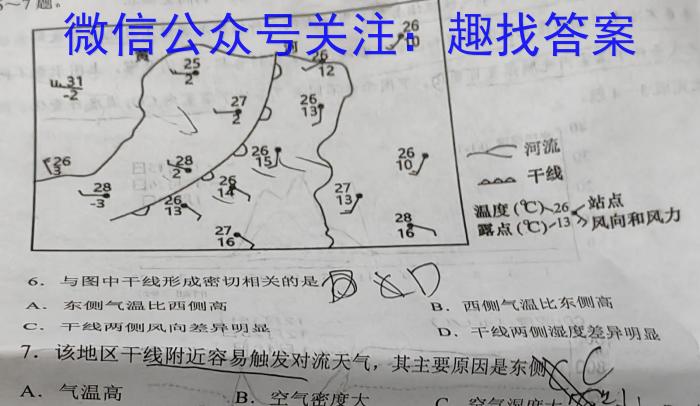 5～7题。
微信公众号关注：趣找答案
黄
河
26
10
31
-2
25
2
26
12
27
2
26
13
26
3
28
2
26
15
26
10
28
-3
26
14
26
13
27
13
27
16
28
16
河流
干线
温度(℃)
露点(℃)
26
13
站点
风向和风力
6．与图中干线形成密切相关的是 D
A．东侧气温比西侧高
B．西侧气温比东侧高
C．干线两侧风向差异明显
D．干线两侧湿度差异明显
7．该地区干线附近容易触发对流天气，其主要原因是东侧 C
A．气温高
B．空气密度大
C．空气湿度大